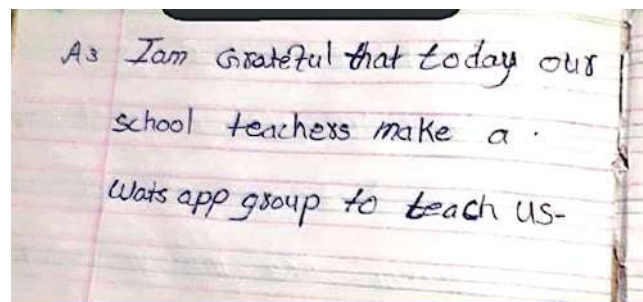 A3 Iam Grateful that today our
school teachers make a .
Wats app group to teach us-